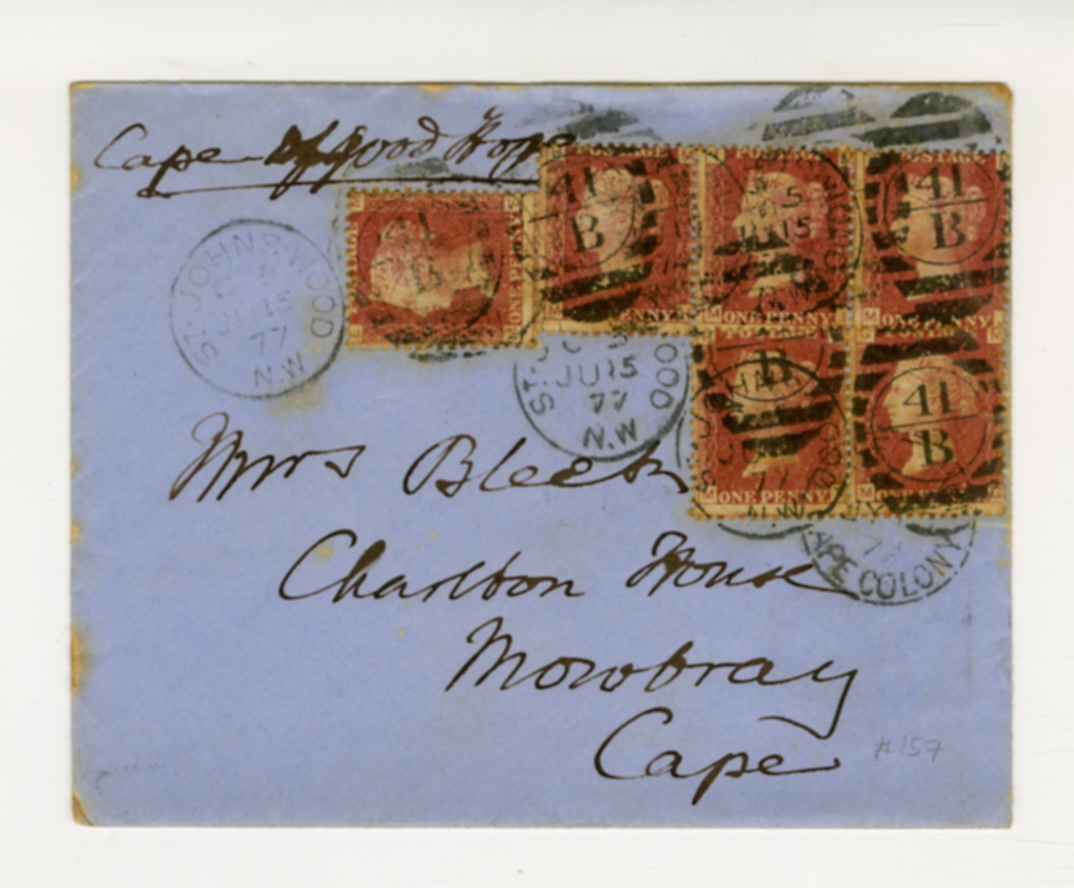 Cape of Good Hope
POSTAGE
POSTAGE
POSTAGE
41
B
41
B
JU 15
ONE PENNY
PENNY
ONE PENNY
ONE PENNY
ST JOHNS WOOD
JU 15
77
N.W
ST
WOOD
JU 15
77
N.W
B
41
B
ONE PENNY
N.W
CAPE COLONY
Mrs Bleek
Charlton House
Mowbray
Cape
#157